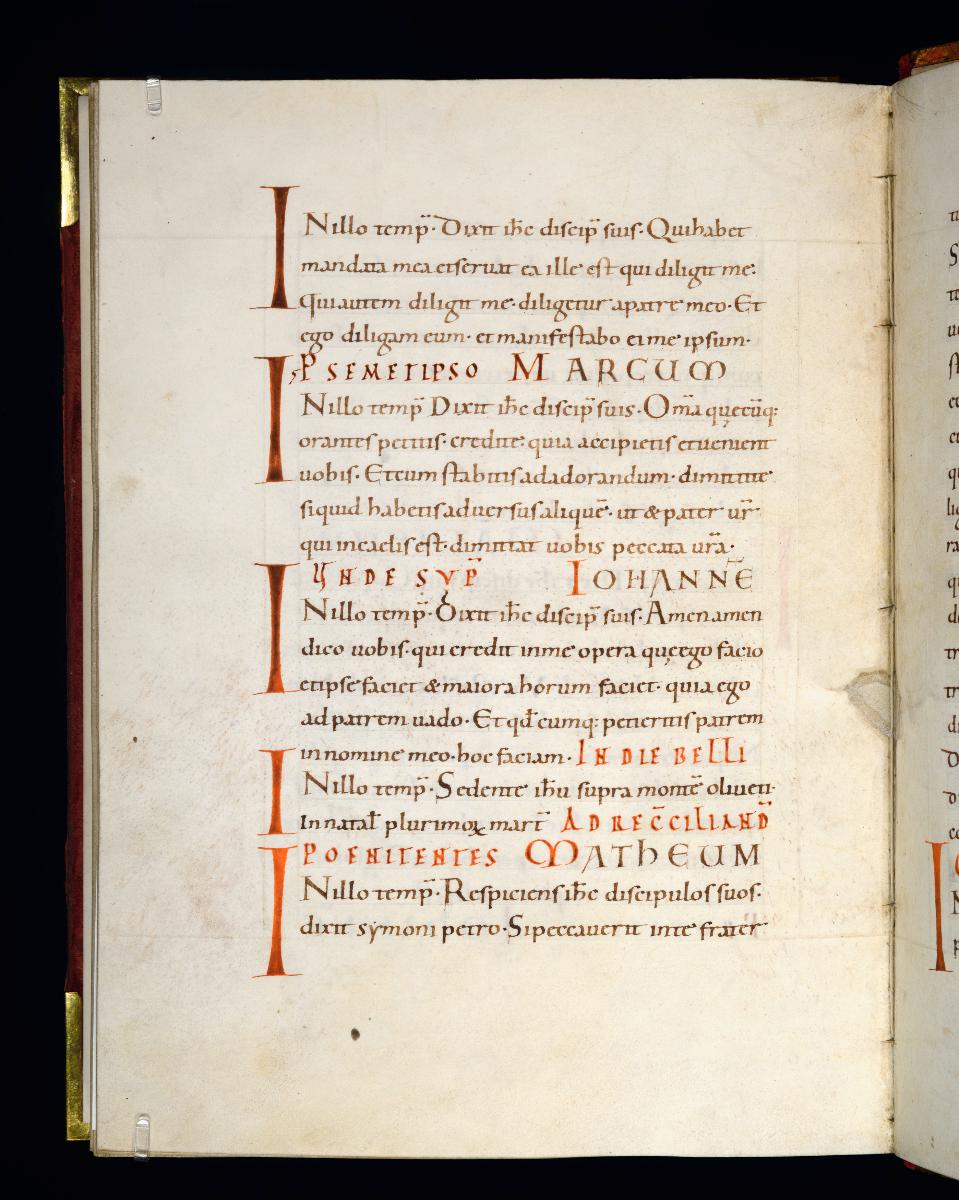 INillo temp̄· Dixit ih̅c discip̄ suis· Qui habet
mandata mea et servat ea ille est qui diligit me·
qui autem diligit me· diligetur a patre meo· Et
ego diligam eum· et manifestabo ei me ipsum·
P SEMETIPSO MARCUM
INillo temp̄ Dixit ih̅c discip̄ suis· Om̅a quęcu̅q:
orantes petitis· credite· quia accipietis et uenient
uobis· Et cum stabitis ad adorandum· dimittite
siquid habetis adversus alique̅· ut & pater ur̅
qui in caelis est· dimittat uobis peccata ur̅a·
UNDE SUP̄ IOHANNE̅
INillo temp̄· Dixit ih̅c discip̄ suis· Amen amen
dico uobis· qui credit in me opera quę ego facio
et ipse faciet & maiora horum faciet· quia ego
ad patrem uado· Et qd̅cumq: petieritis patrem
in nomine meo· hoc faciam· IN DIE BELLI
INillo temp̄· Sedente ih̅u supra monte̅ oliueti·
In natal̅ plurimoꝝ mart̅ AD REC̅CILIAND̅
POENITENTES MATHEUM
INillo temp̄· Respiciens ih̅c discipulos suos·
dixit symoni petro· Si peccaverit in te frater